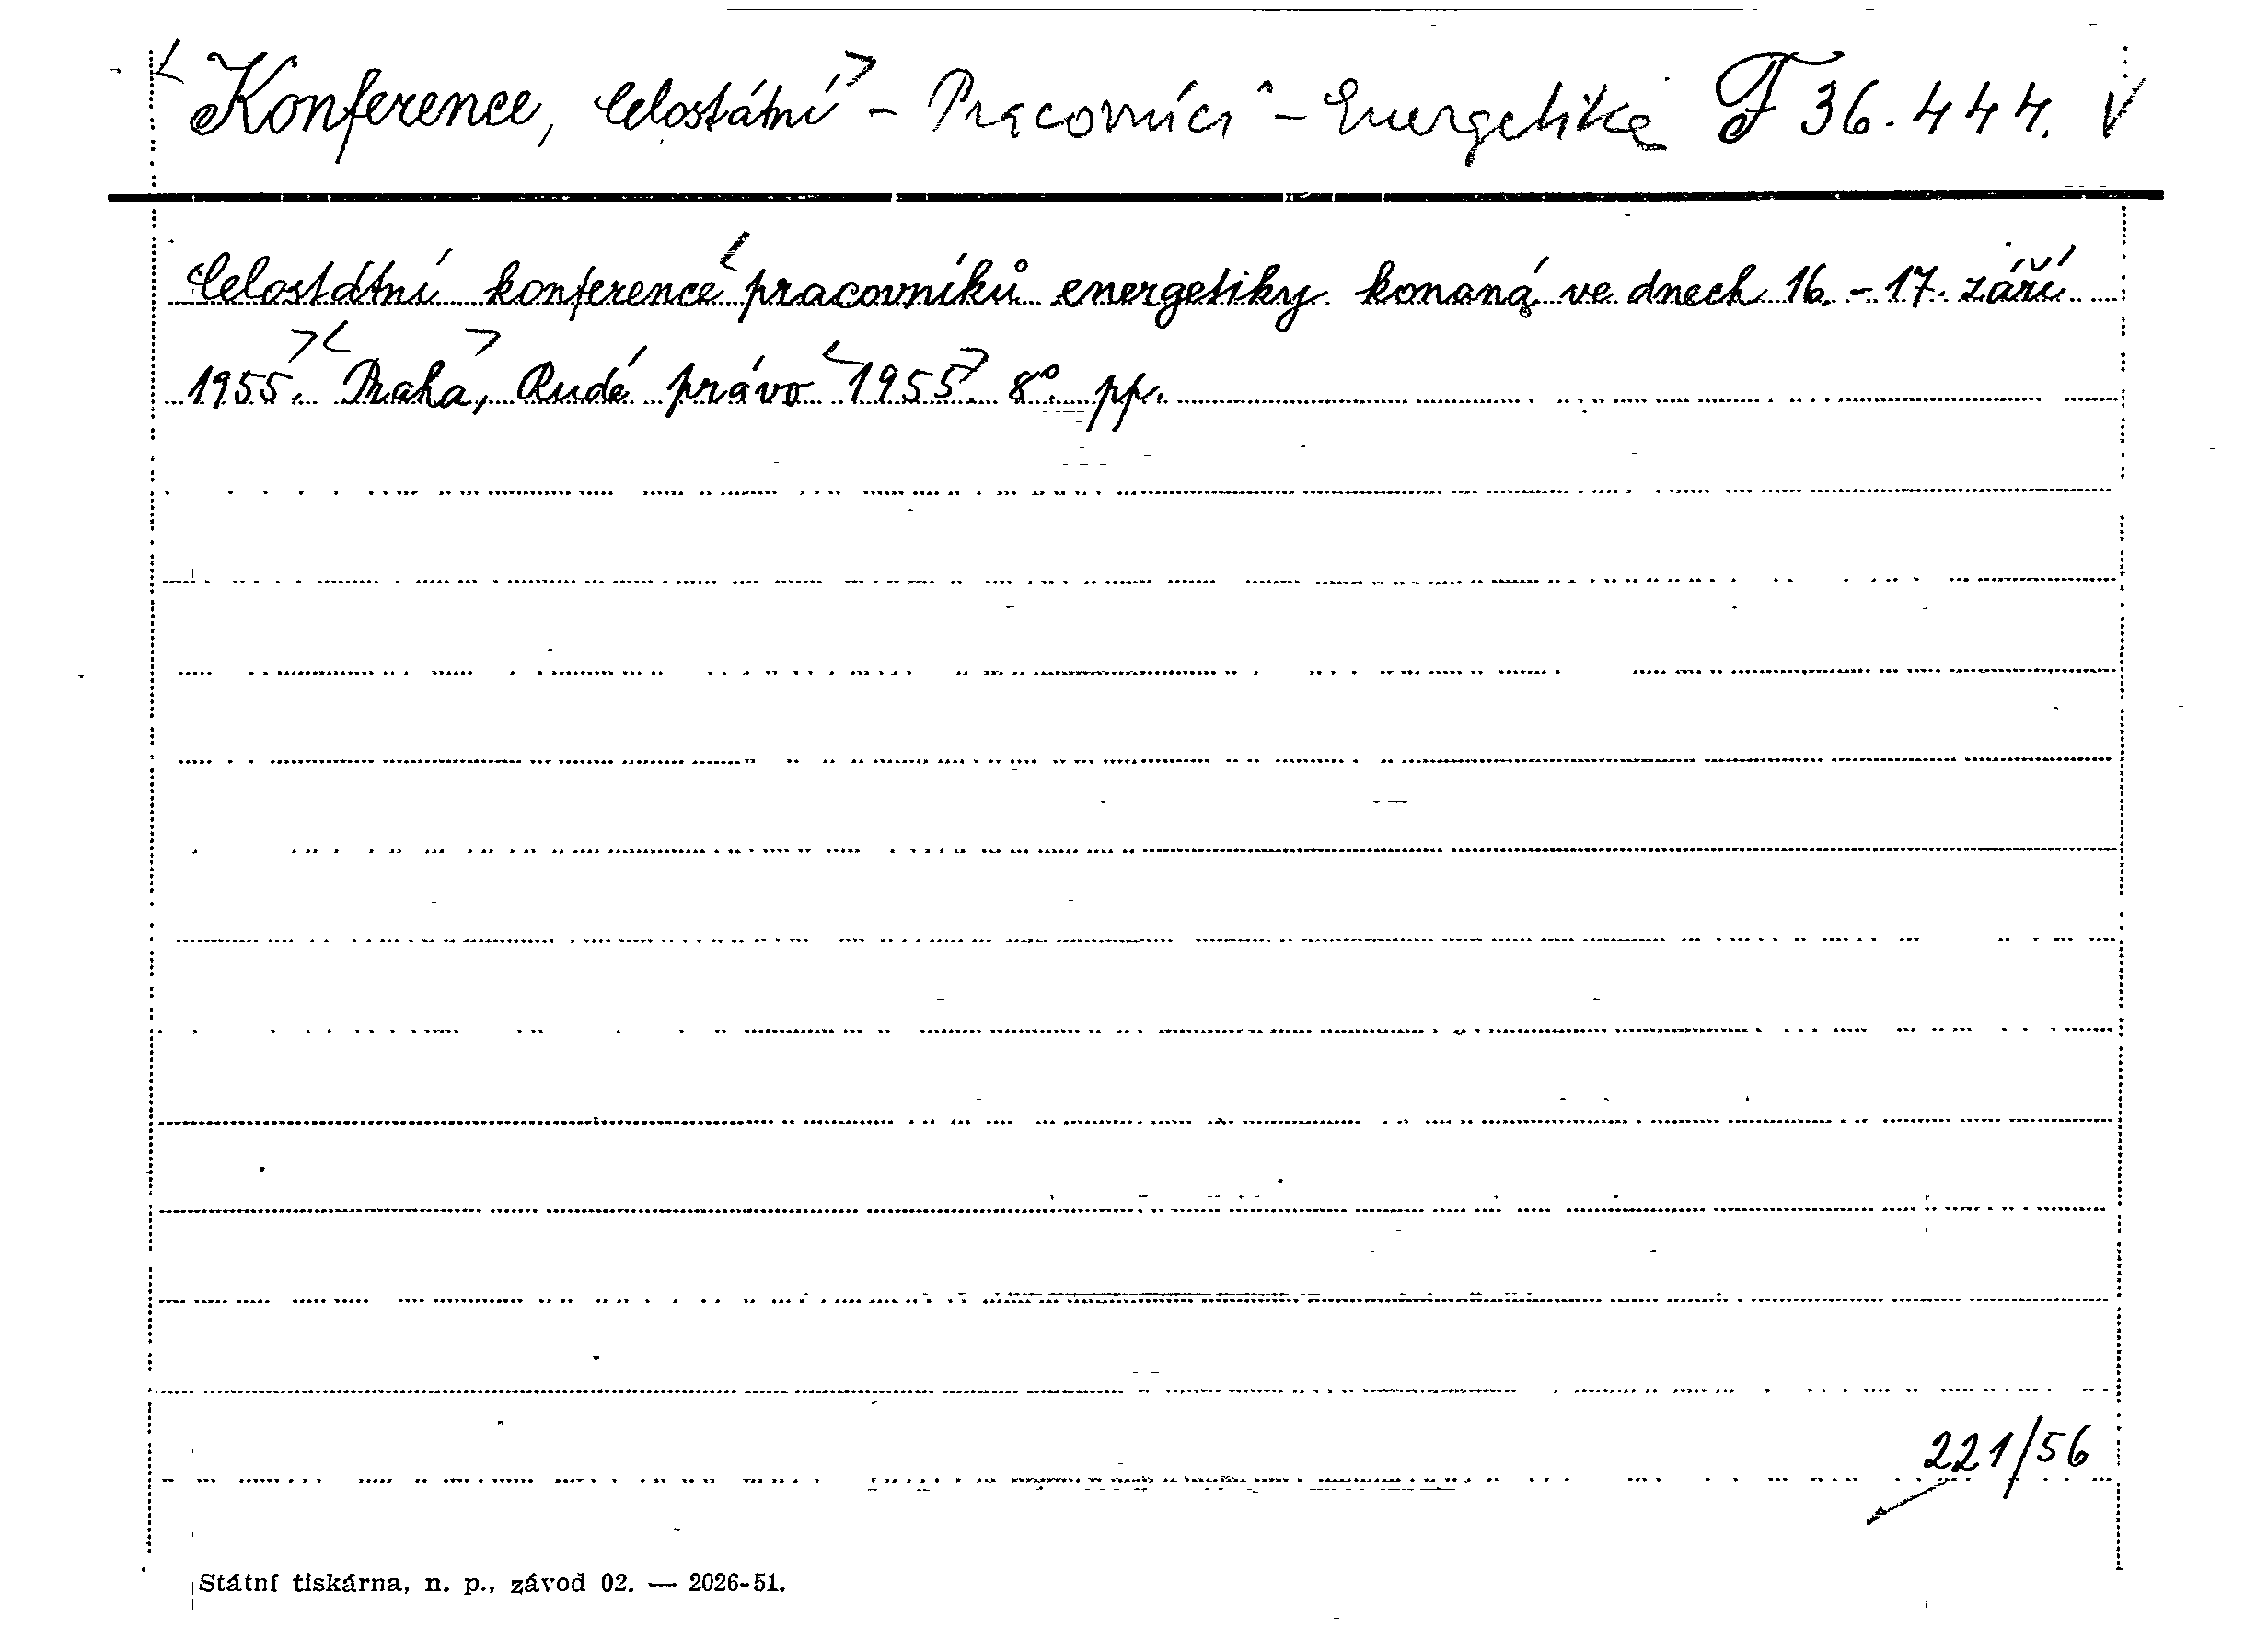 <Konference, celostátní> - Pracovníci - Energetika F 36.444. V
Celostátní konference <pracovníků energetiky konaná ve dnech 16. - 17. září
1955.> <Praha,> Rudé právo <1955> 8°. pp.
221/56
Státní tiskárna, n. p., závod 02. — 2026-51.